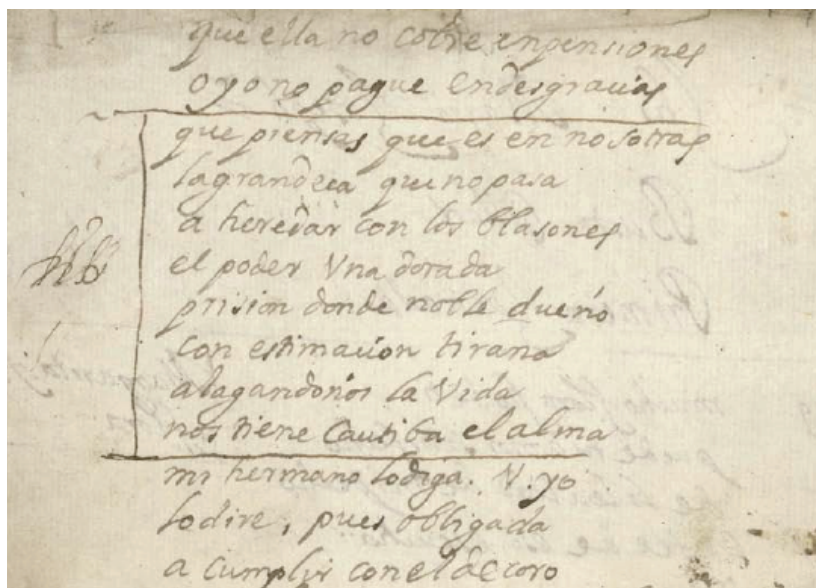 que ella no cobre en pensiones
o yo no pague en desgracias
que piensas que es en nosotras
la grandeça que no pasa
a heredar con los blasones
el poder Vna dorada
prision donde noble dueño
con estimacion tirana
alagandonos la Vida
nos tiene Cautiba el alma
mi hermano lo diga. Y. yo
lo dire, pues obligada
a cumplir con el decoro